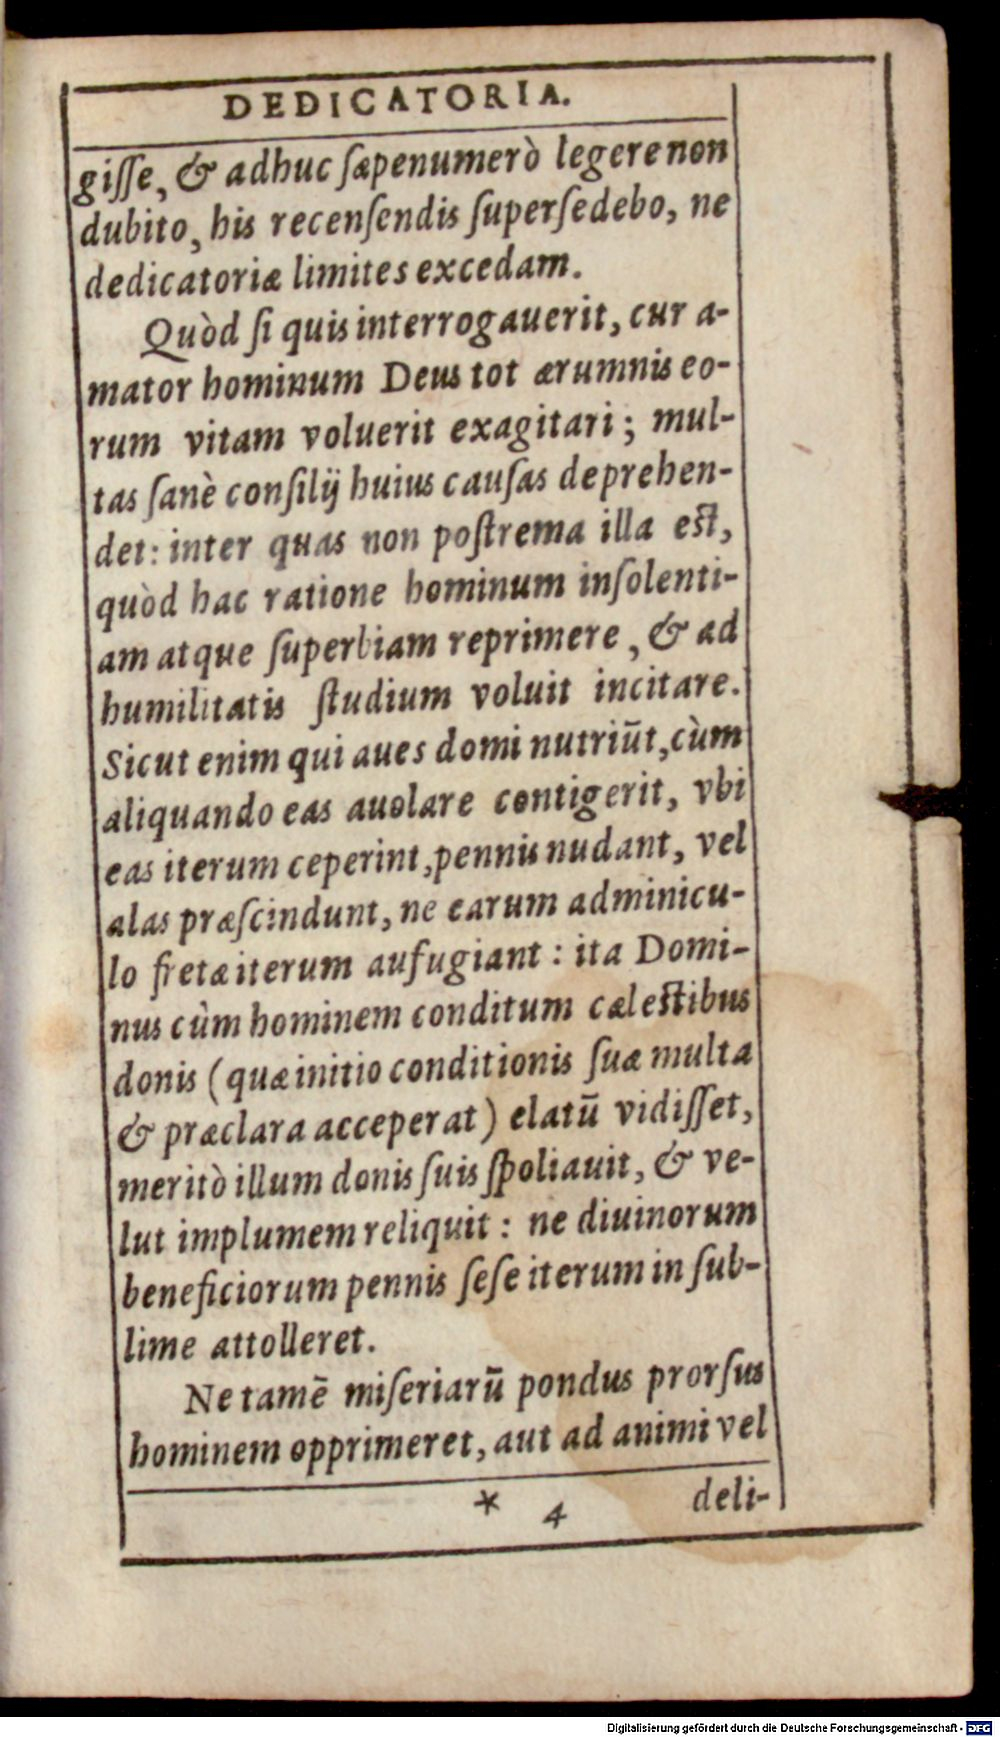 DEDICATORIA.
giſſe, & adhuc ſæpenumerò legere non
dubito, his recenſendis ſuperſedebo, ne
dedicatoriæ limites excedam.
Quòd ſi quis interrogauerit, cur a-
mator hominum Deus tot ærumnis eo-
rum vitam voluerit exagitari; mul-
tas ſanè conſilij huius cauſas deprehen-
det: inter quas non poſtrema illa eſt,
quòd hac ratione hominum inſolenti-
am atque ſuperbiam reprimere, & ad
humilitatis ſtudium voluit incitare.
Sicut enim qui aues domi nutriūt, cùm
aliquando eas auolare contigerit, vbi
eas iterum ceperint, pennis nudant, vel
alas præſcindunt, ne earum adminicu-
lo fretæ iterum aufugiant: ita Domi-
nus cùm hominem conditum cæleſtibus
donis (quæ initio conditionis ſuæ multa
& præclara acceperat) elatū vidiſſet,
meritò illum donis ſuis ſpoliauit, & ve-
lut implumem reliquit: ne diuinorum
beneficiorum pennis ſeſe iterum in ſub-
lime attolleret.
Ne tamē miſeriarū pondus prorſus
hominem opprimeret, aut ad animi vel
* 4 deli-
Digitalisierung gefördert durch die Deutsche Forschungsgemeinschaft - DFG